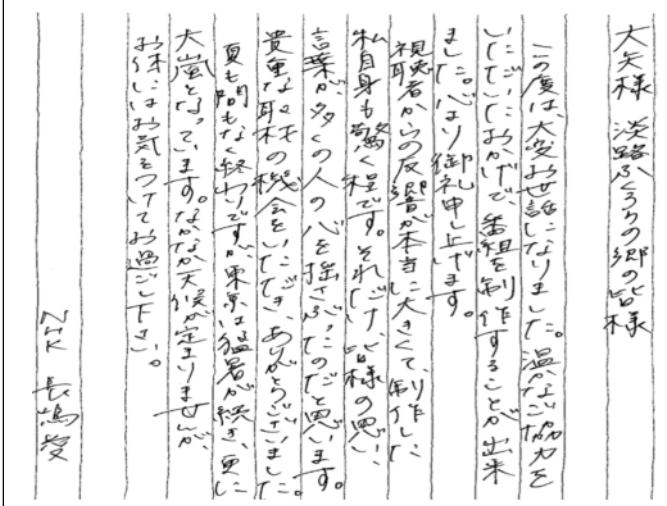 大矢様 淡路ふくろうの郷の皆様
この度は、大変お世話になりました。温かなご協力を
いただいたおかげで、番組を制作することが出来
ました。心より御礼申し上げます。
視聴者からの反響が本当に大きくて、制作した
私自身も驚く程です。それだけ、皆様の思い、
言葉が、多くの人の心を揺さぶったのだと思います。
貴重な取材の機会をいただき、ありがとうございました。
夏も間もなく終わりですが、東京は猛暑が続き、更に
大嵐となっています。なかなか天候が定まりませんが、
お体にはお気をつけてお過ごし下さい。
NHK 長嶋愛